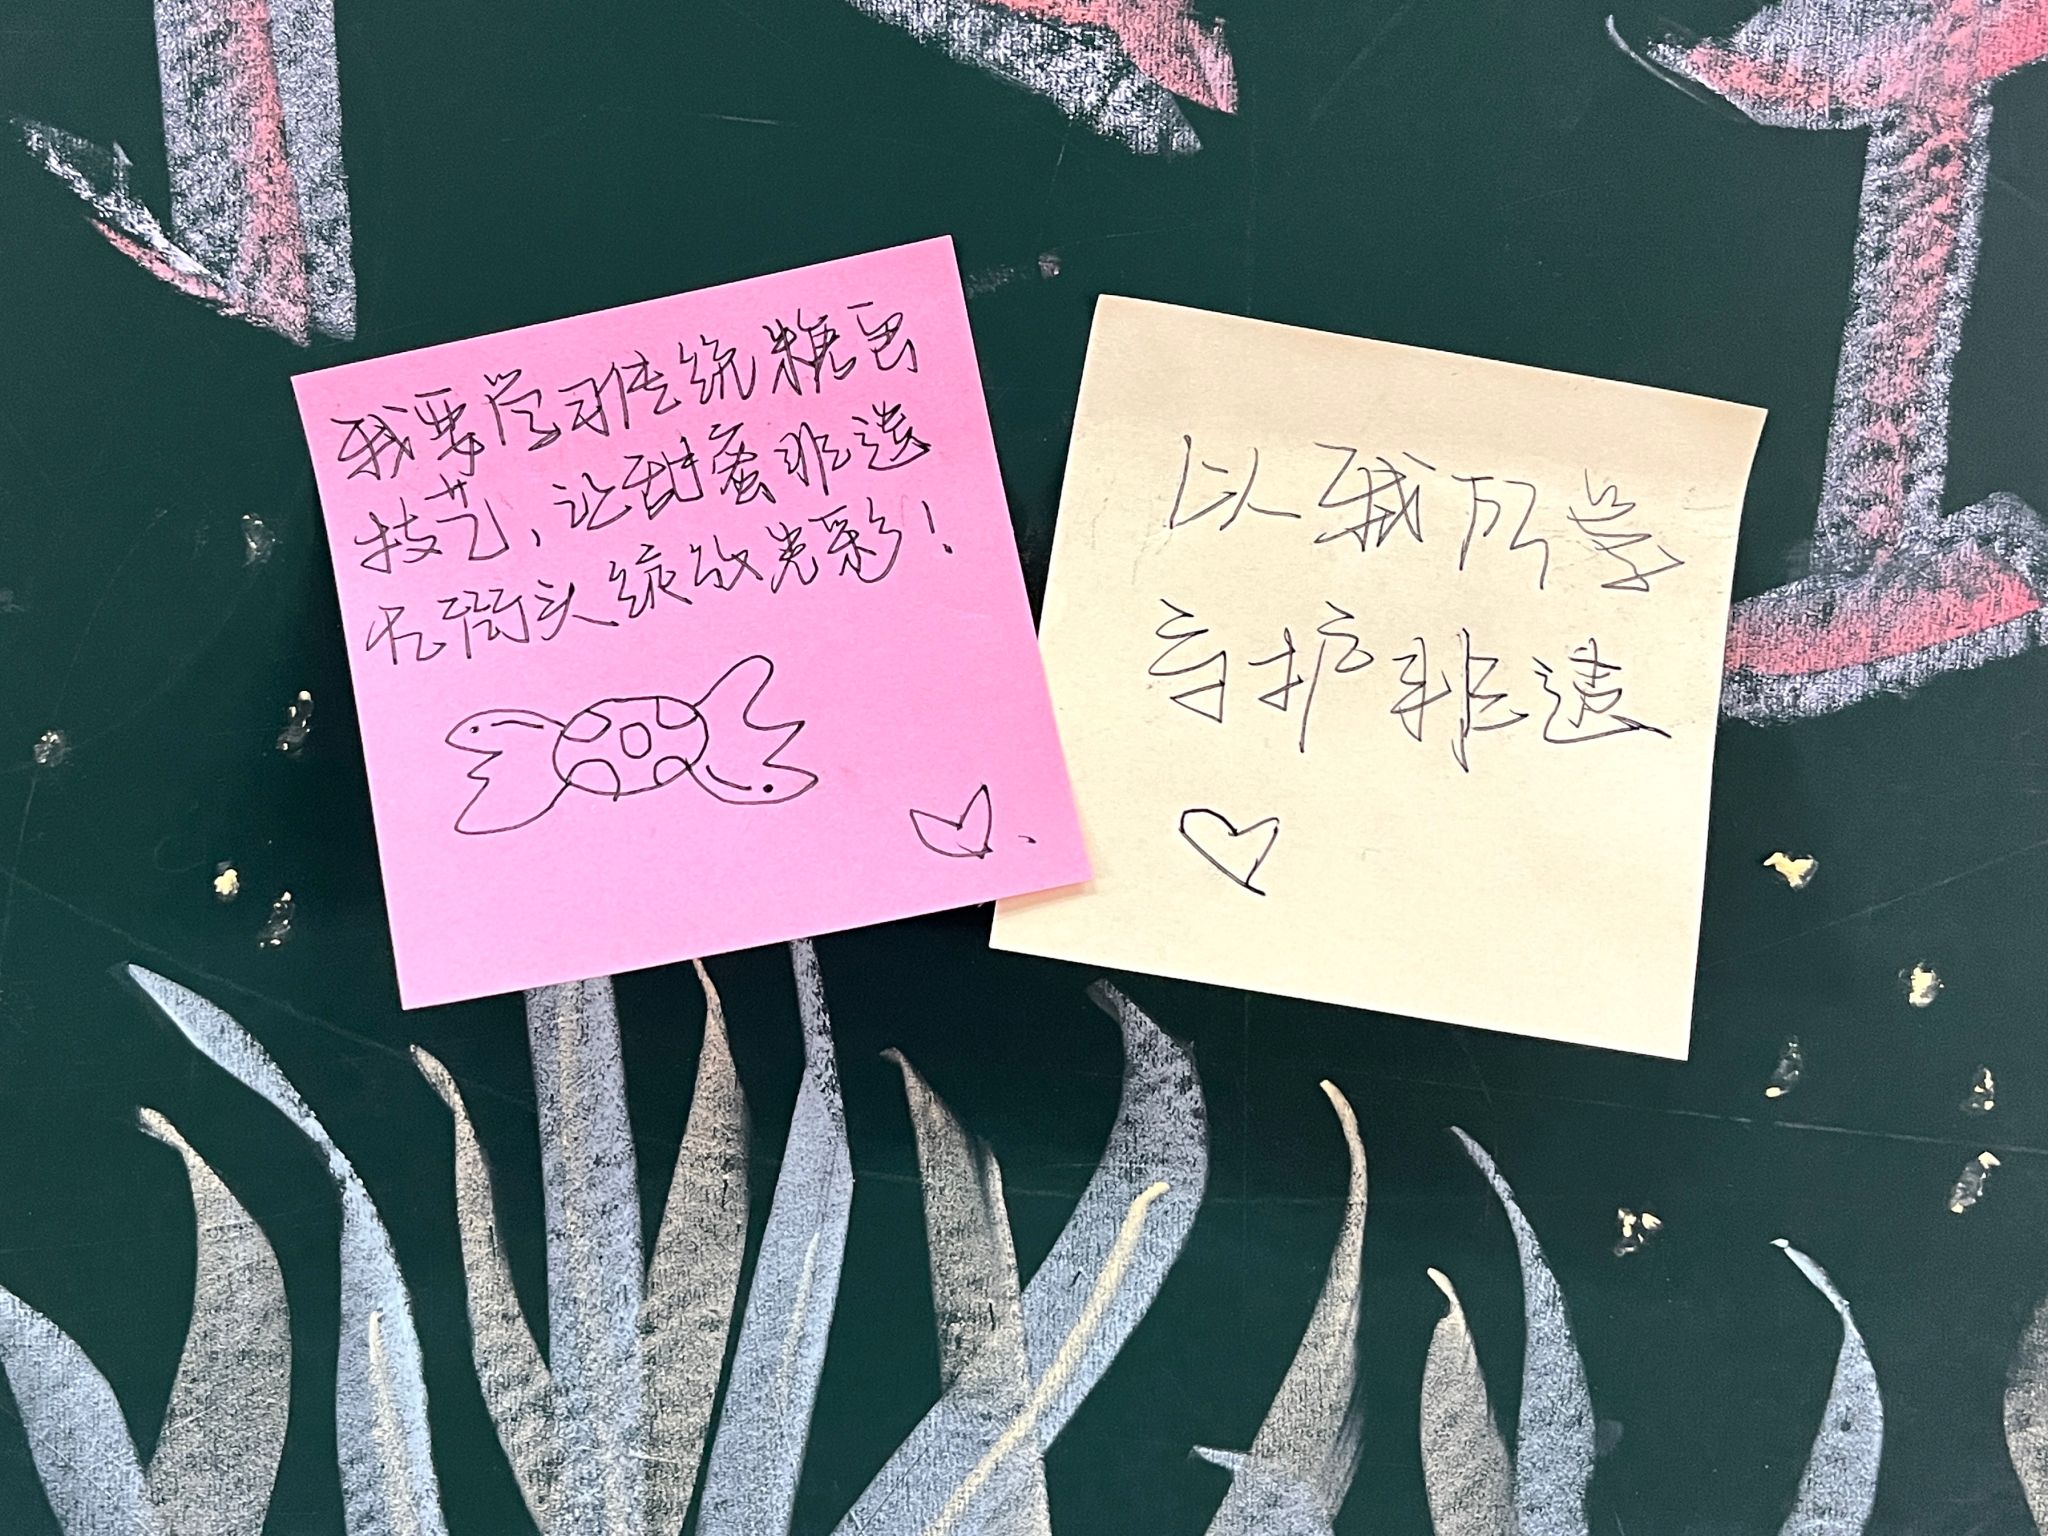 我要学习传统糖画
技艺，让甜蜜非遗
在街头绽放光彩！
以我所学
守护非遗